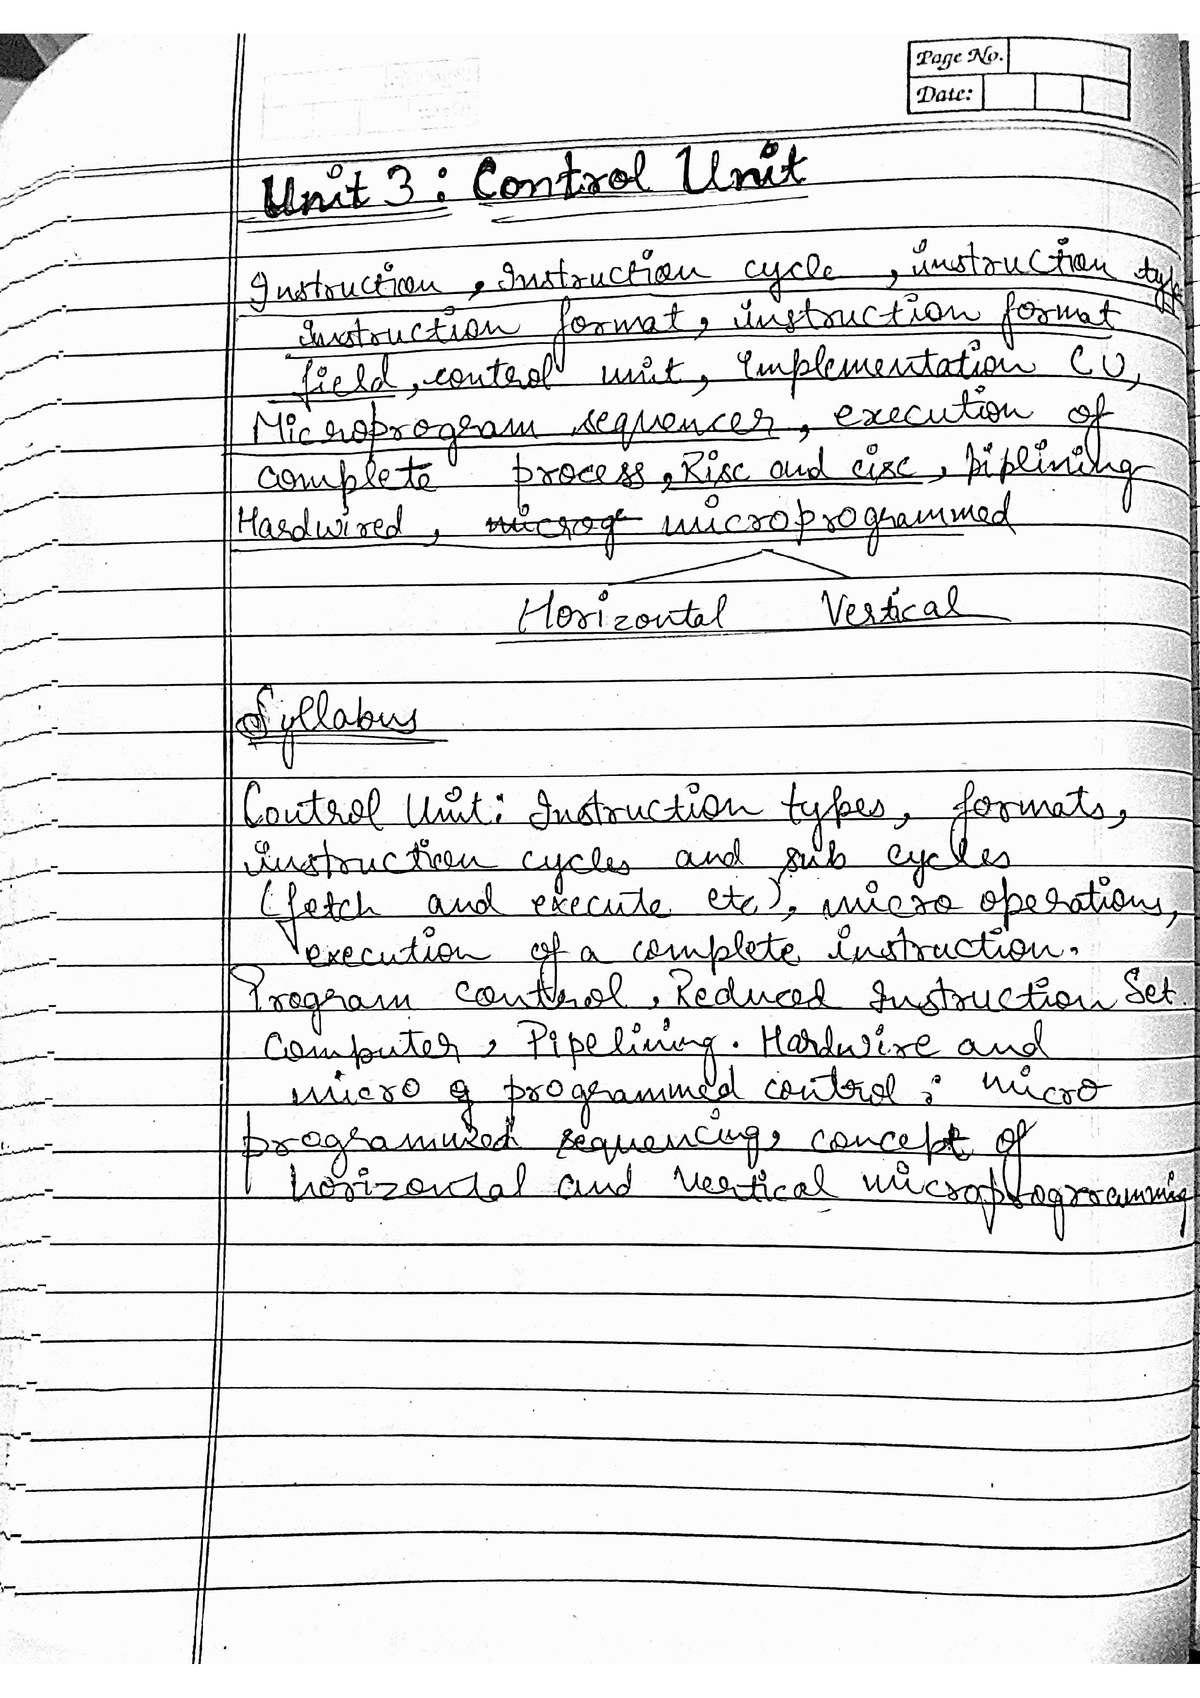 Page No.
Date:
Unit 3 : Control Unit
Instruction, Instruction cycle, instruction typ
instruction format, instruction format
field, control unit, Implementation CU,
Microprogram sequencer, execution of
complete process, Risc and cisc, piplining
Hardwired, microg microprogrammed
Horizontal Vertical
Syllabus
Control Unit: Instruction types, formats,
instruction cycles and sub cycles
(fetch and execute etc), micro operations,
execution of a complete instruction.
Program control, Reduced Instruction Set
Computer, Pipelining. Hardwire and
micro programmed control: micro
programmed sequencing, concept of
horizontal and vertical microprogramming